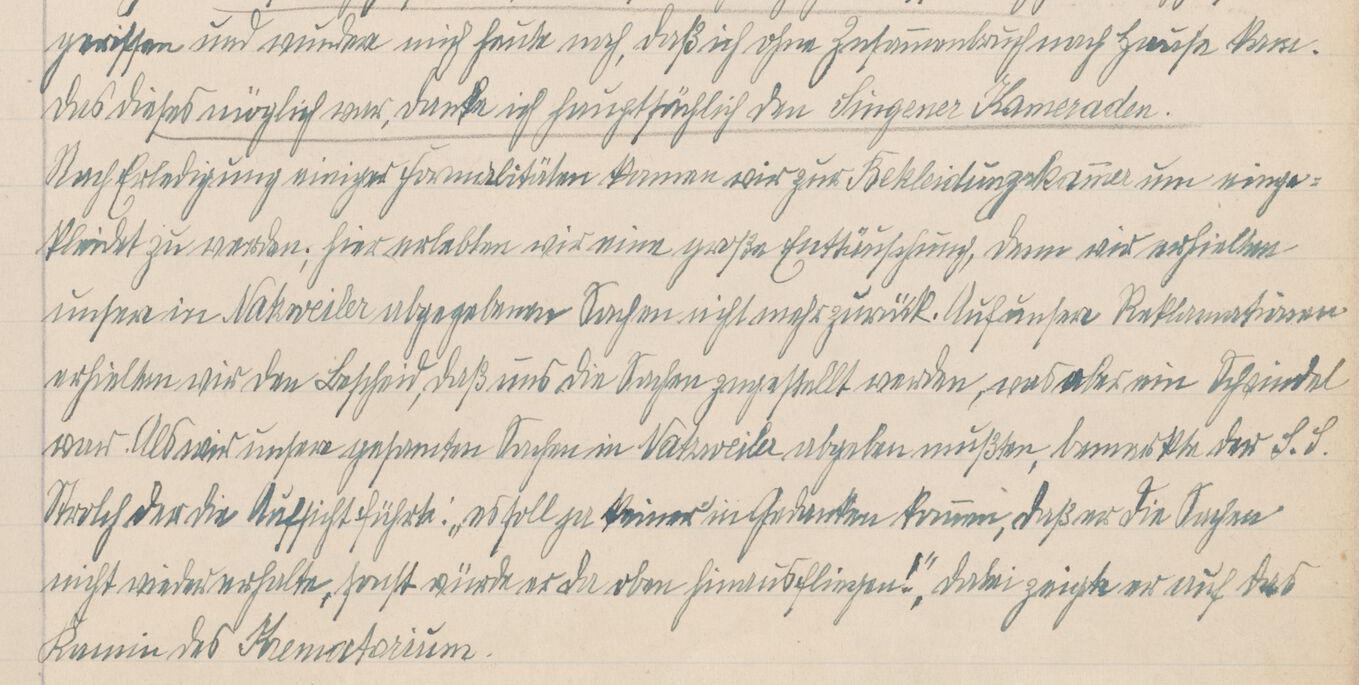 gerissen und wundere mich heute noch, daß ich ohne Zusam̅enbruch nach Hause kam.
Das dieses möglich war, danke ich hauptsächlich den Singener Kameraden.
Nach Erledigung einiger Formalitäten kamen wir zur Bekleidungskam̅er um einge=
kleidet zu werden; hier erlebten wir eine große Enttäuschung, denn wir erhielten
unsere in Natzweiler abgegebenen Sachen nicht mehr zurück. Auf unsere Reklamationen
erhielten wir den Bescheid, daß uns die Sachen zugestellt werden, was aber ein Schwindel
war. Als wir unsere gesamten Sachen in Natzweiler abgeben mußten, bemerkte der S.S.
Strolch der die Aufsicht führte: „es soll ja keiner in Gedanken kom̅en, daß er die Sachen
nicht wieder erhalte, sonst würde er da oben hinausfliegen!", dabei zeigte er auf das
Kamin des Krematorium.